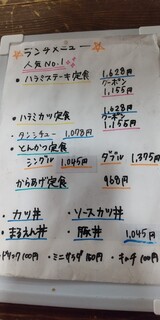 ランチメニュー
人気No.1
・ハラミステーキ定食 1,628円
クーポン 1,155円
・ハラミカツ定食 1,628円
クーポン 1,156円
・タンシチュー 1,078円
・とんかつ定食
シングル 1,045円 ダブル 1,375円
からあげ定食 968円
・カツ丼 ・ソースカツ丼
・まるえん丼 ・豚丼 1,045円
・ドリンク100円 ・ミニサラダ150円 ・キムチ100円